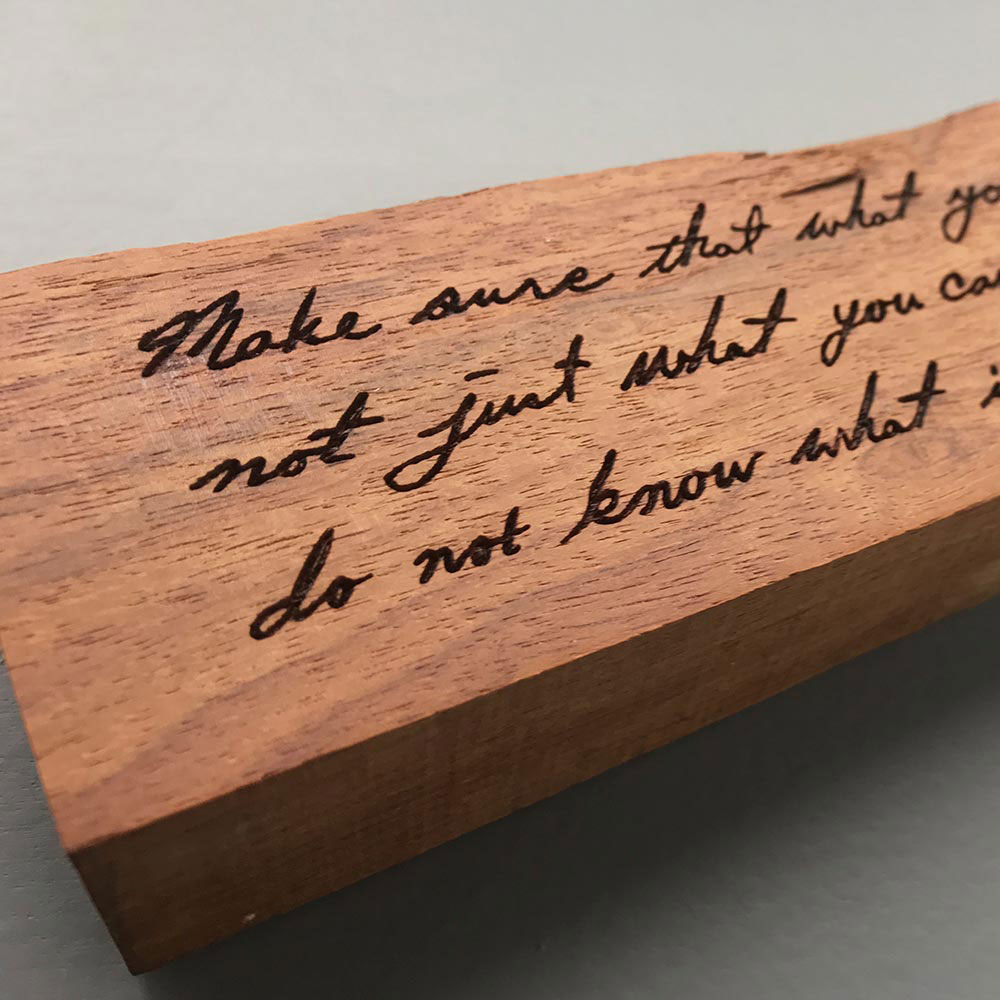 Make sure that what yo
not just what you ca
do not know what i